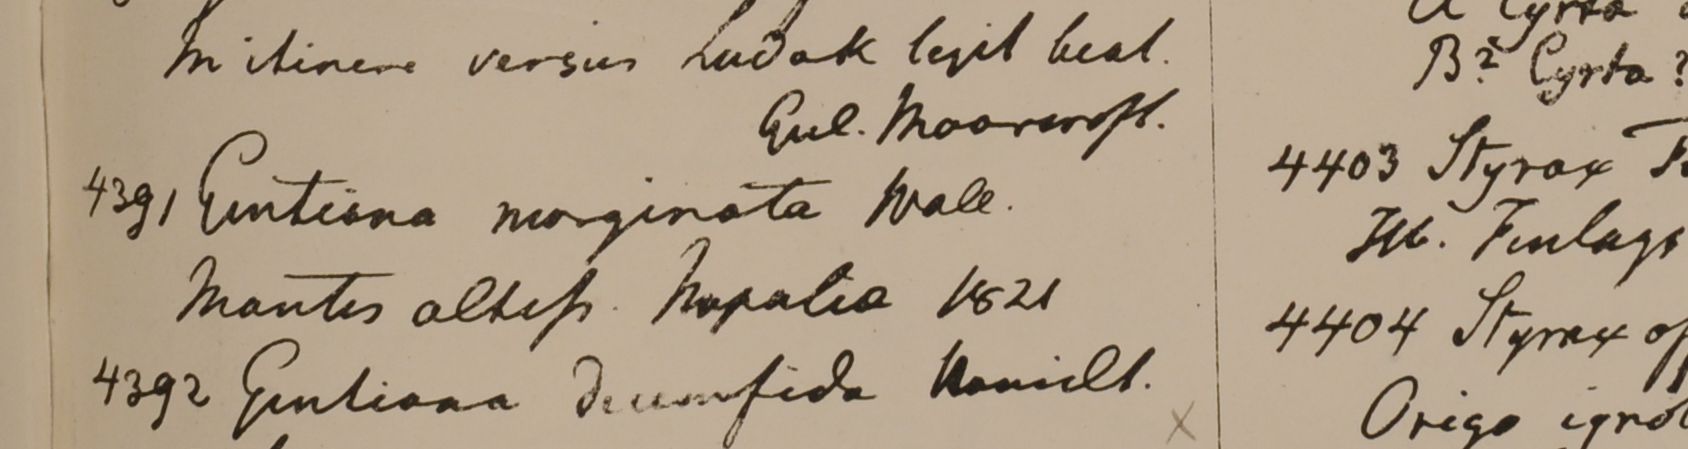 In itinere versus Ludak legit beat.
Gul. Moorcroft.
4391 Gentiana marginata Wall.
Montes altiss. Napalia 1821
4392 Gentiana decemfida Hamilt.
x
a Cyrta
B? Cyrta ?
4403 Styrax
Hb. Finlays
4404 Styrax of
Origo ignot